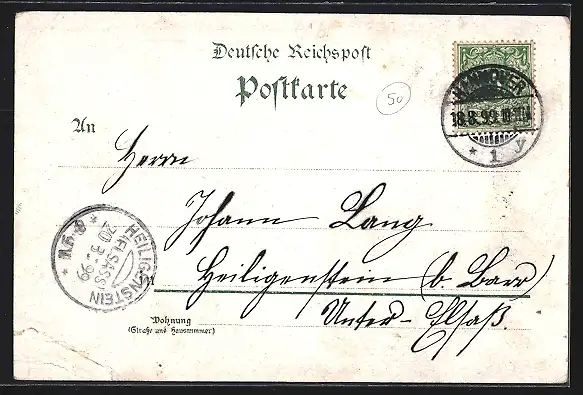 Deutsche Reichspost
Postkarte
50
HANNOVER
18.8.99.
* 1 y
An
Herrn
Johann Lang
Heiligenstein (b. Barr)
in
Unter-Elsaß.
Wohnung
(Straße und Hausnummer)
HEILIGENSTEIN
(ELSASS)
20 8 99